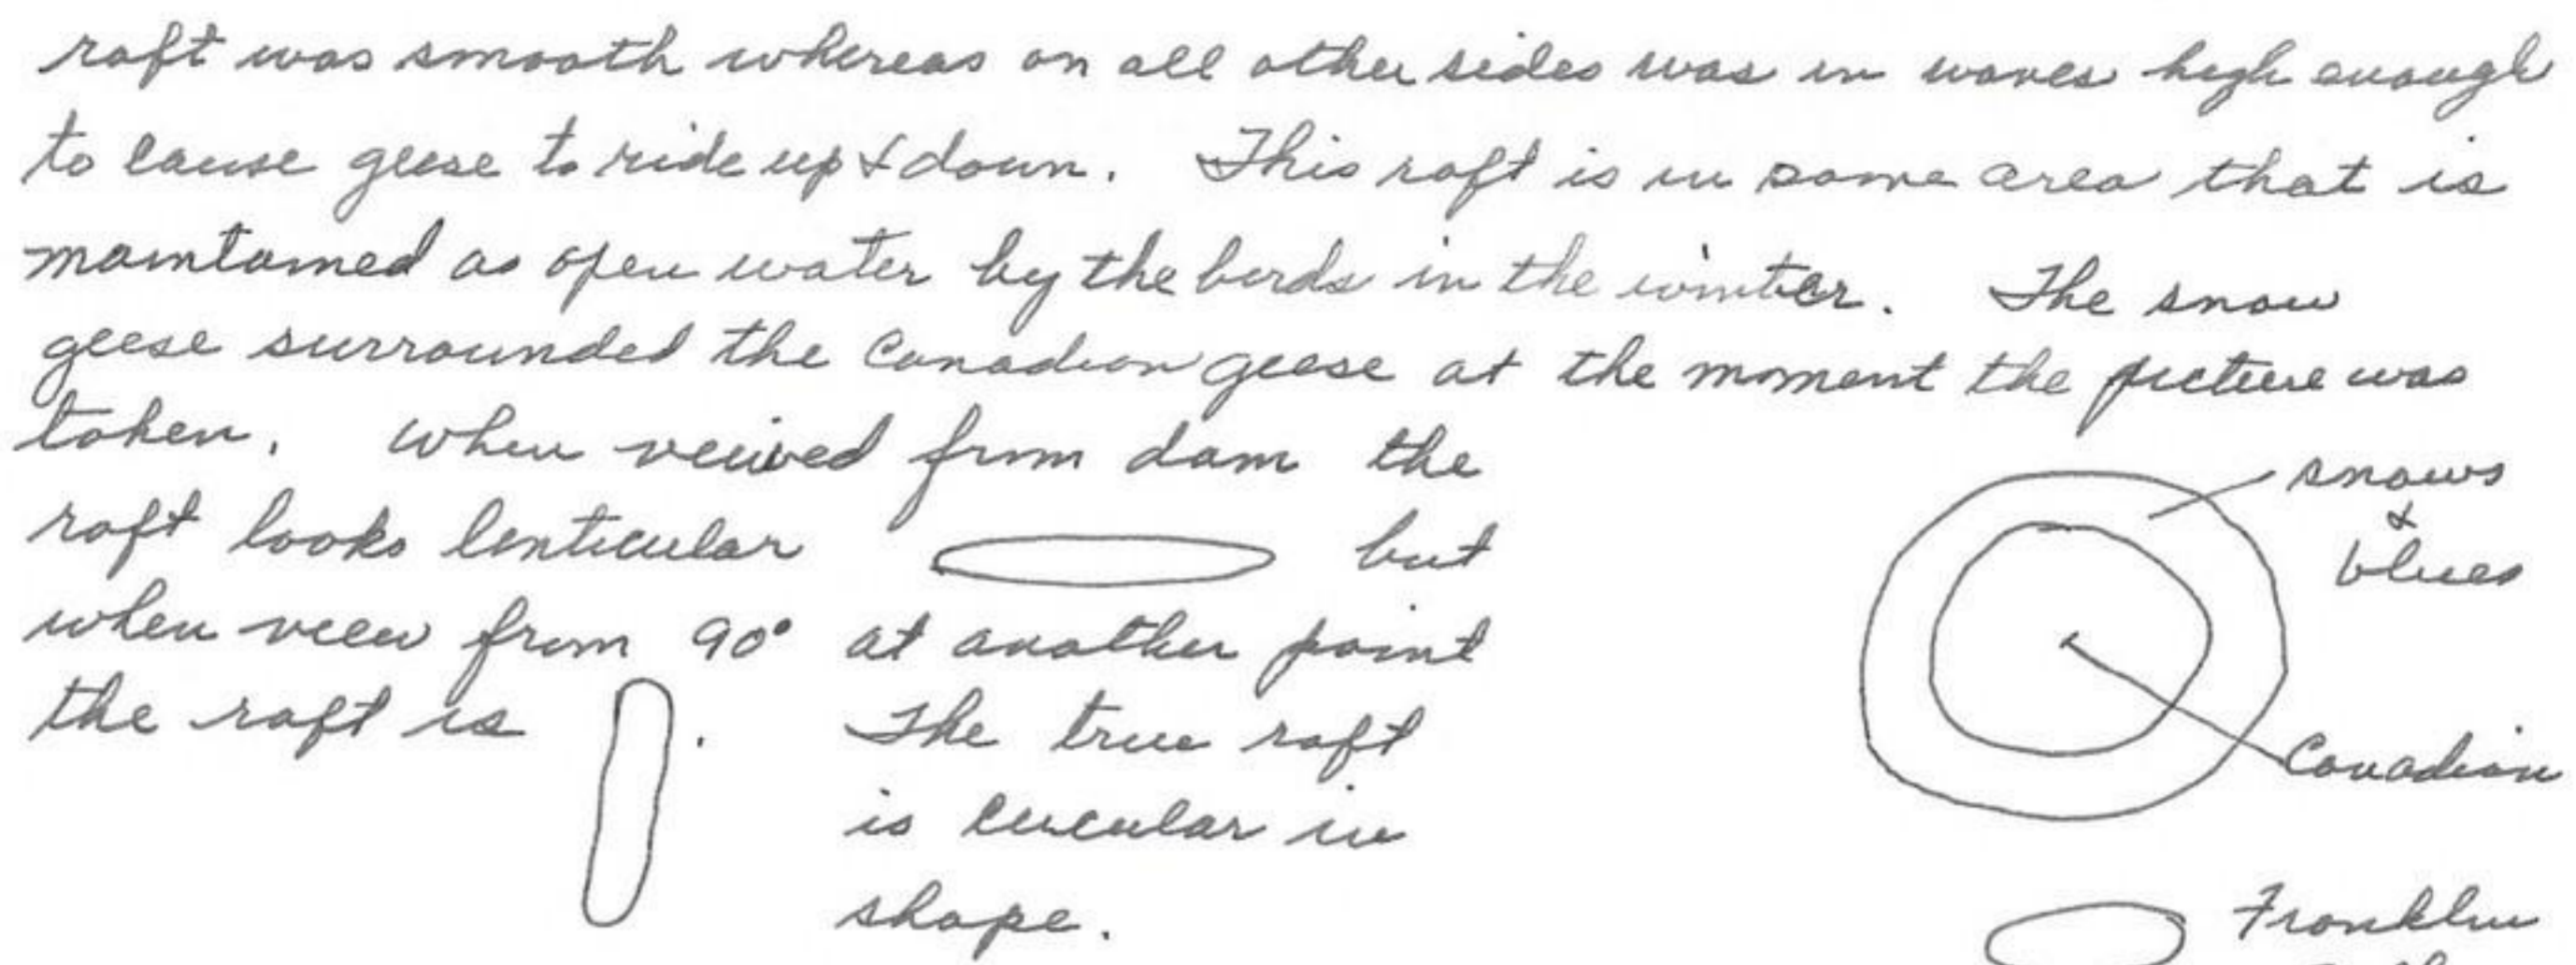 raft was smooth whereas on all other sides was in waves high enough
to cause geese to ride up & down. This raft is in same area that is
maintained as open water by the birds in the winter. The snow
geese surrounded the Canadian geese at the moment the picture was
taken. When veiwed from dam the
raft looks lenticular but
when veiw from 90° at another point
the raft is .
The true raft
is circular in
shape.
snows
&
blues
Canadian
Franklin